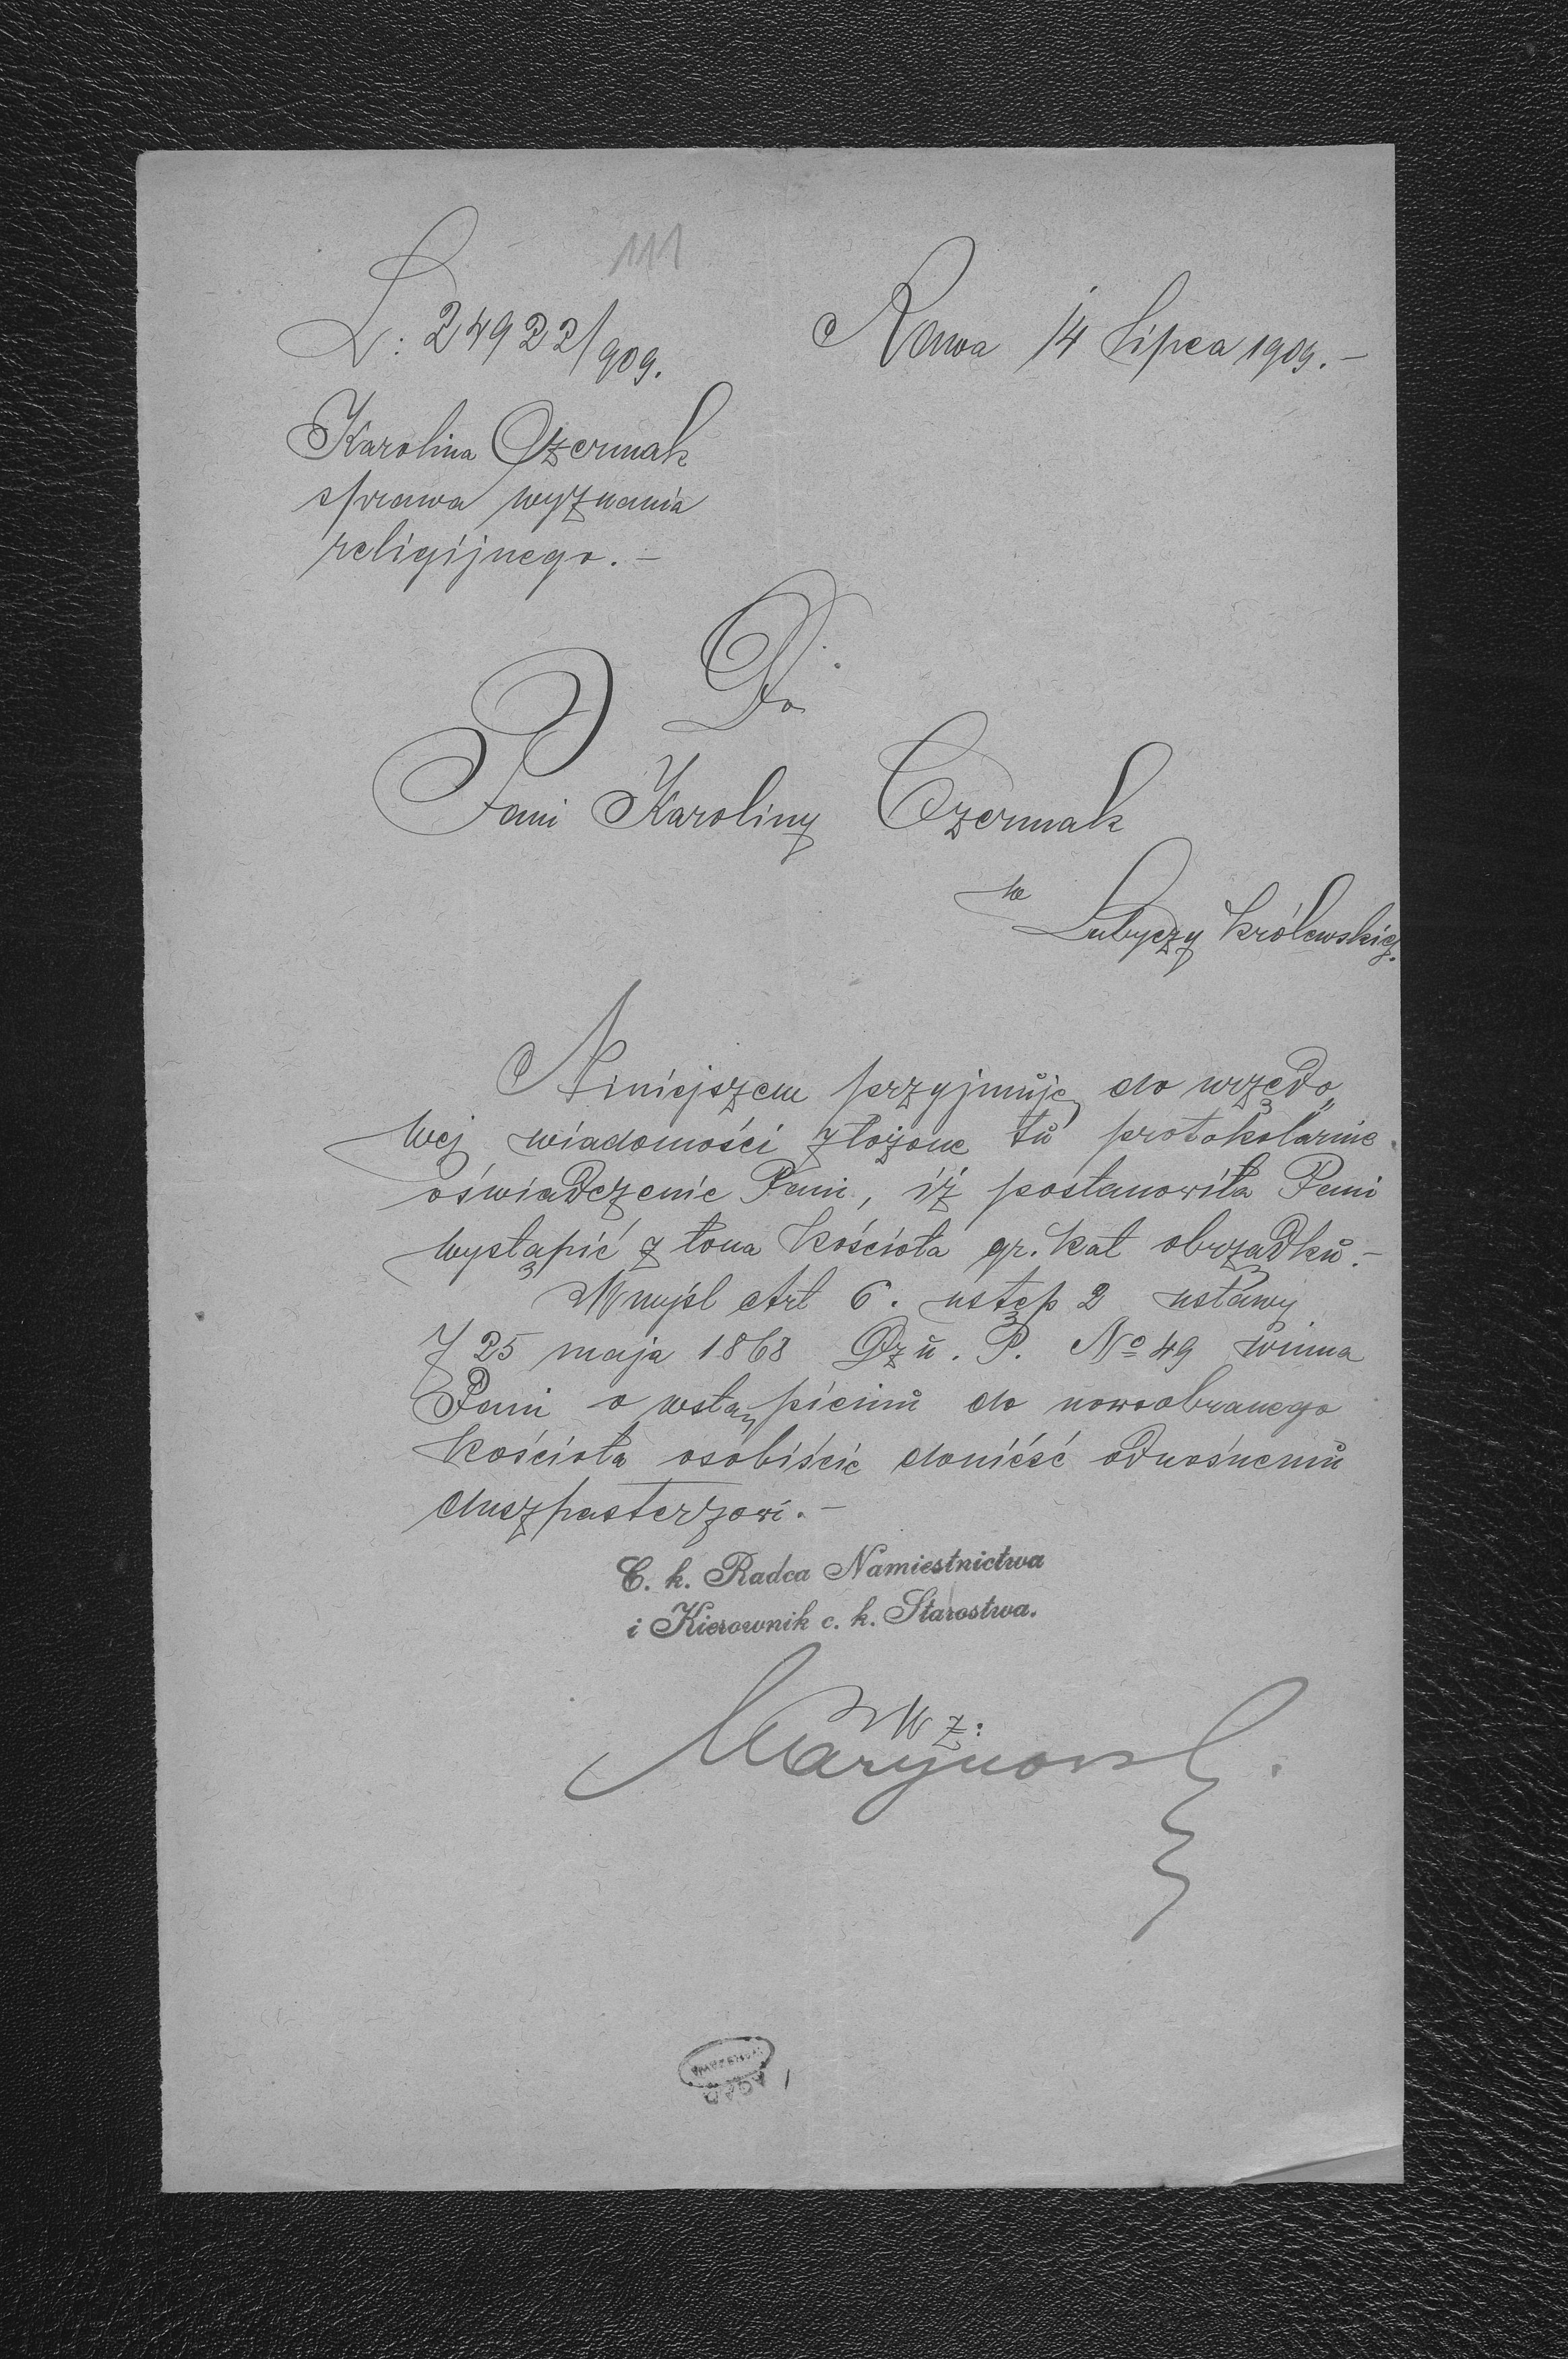 111
L: 24922/909.
Rawa 14 lipca 1909.-
Karolina Czermak
sprawa wyznania
religijnego.-
Do
Pani Karoliny Czermak
w
Lubyczy Królewskiej.
Niniejszem przyjmuję do urzędo„
wej wiadomości złożone tu protokolarnie
oświadczenie Pani, iż postanowiła Pani
wystąpić z łona kościoła gr. kat obrządku.-
W myśl Art 6. ustęp 2 ustawy
z 25 maja 1868 Dz u. P. No 49 winna
Pani o wstąpieniu do nowoobranego
kościoła osobiście donieść odnośnemu
duszpasterzowi.-
C. k. Radca Namiestnictwa
i Kierownik c. k. Starostwa.
W z: